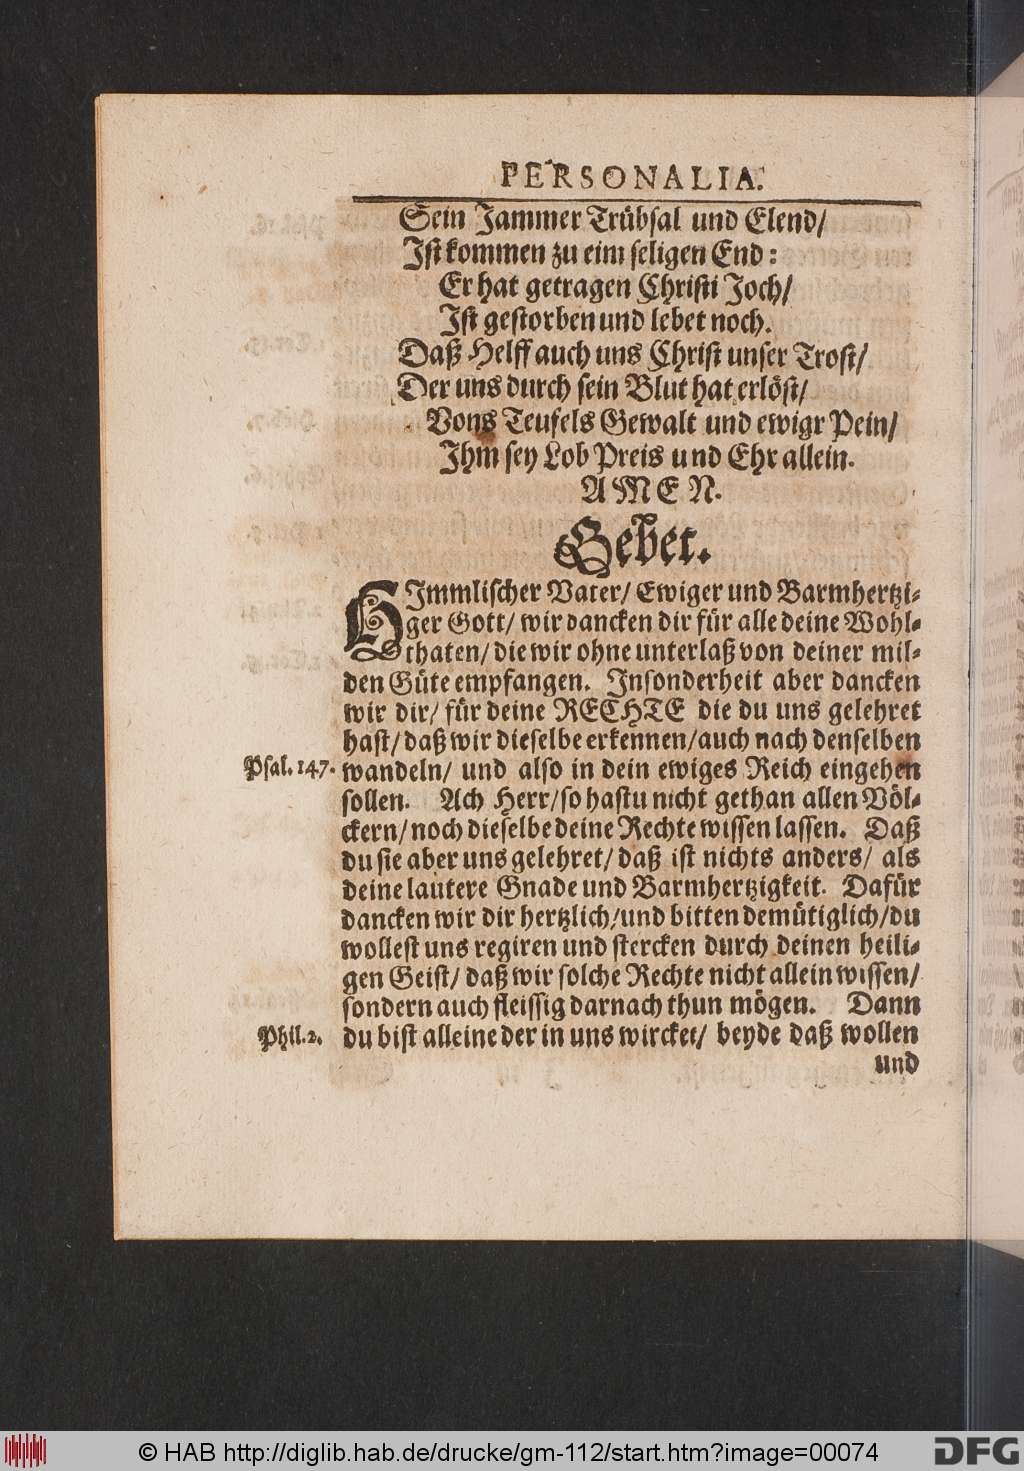 PERSONALIA.
Sein Jammer Trübsal und Elend/
Ist kommen zu eim seligen End:
Er hat getragen Christi Joch/
Ist gestorben und lebet noch.
Daß Helff auch uns Christ unser Trost/
Der uns durch sein Blut hat erlöst/
Vons Teufels Gewalt und ewigr Pein/
Ihm sey Lob Preis und Ehr allein.
AMEN.
Gebet.
HImmlischer Vater/ Ewiger und Barmhertzi-
ger Gott/ wir dancken dir für alle deine Wohl-
thaten/ die wir ohne unterlaß von deiner mil-
den Güte empfangen. Insonderheit aber dancken
wir dir/ für deine RECHTE die du uns gelehret
hast/ daß wir dieselbe erkennen/ auch nach denselben
Psal. 147. wandeln/ und also in dein ewiges Reich eingehen
sollen. Ach Herr/ so hastu nicht gethan allen Völ-
ckern/ noch dieselbe deine Rechte wissen lassen. Daß
du sie aber uns gelehret/ daß ist nichts anders/ als
deine lautere Gnade und Barmhertzigkeit. Dafür
dancken wir dir hertzlich/ und bitten demütiglich/ du
wollest uns regiren und stercken durch deinen heili-
gen Geist/ daß wir solche Rechte nicht allein wissen/
sondern auch fleissig darnach thun mögen. Dann
Phil. 2. du bist alleine der in uns wircket/ beyde daß wollen
und
© HAB http://diglib.hab.de/drucke/gm-112/start.htm?image=00074
DFG